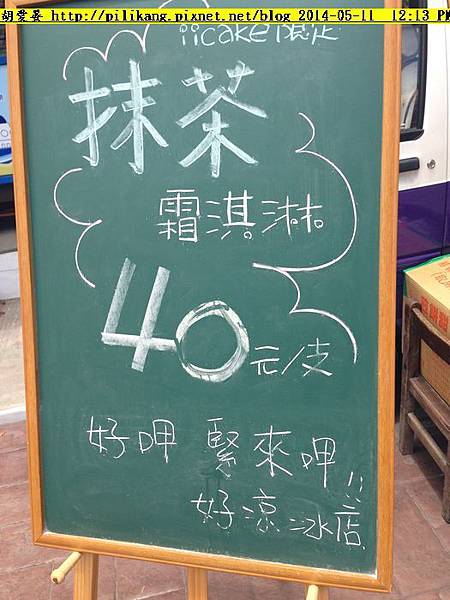 胡愛姜 http://pilikang.pixnet.net/blog 2014-05-11 12:13 PM
iicake限定
抹茶
霜淇淋
40元/支
好呷 緊來呷!!
好涼冰店